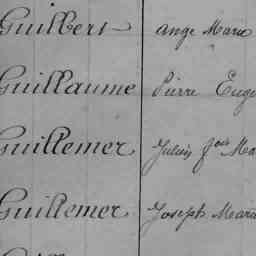 Guilbert Ange Marie
Guillaume Pierre Eugè
Guillemer Julien Jean Ma
Guillemer Joseph Marie